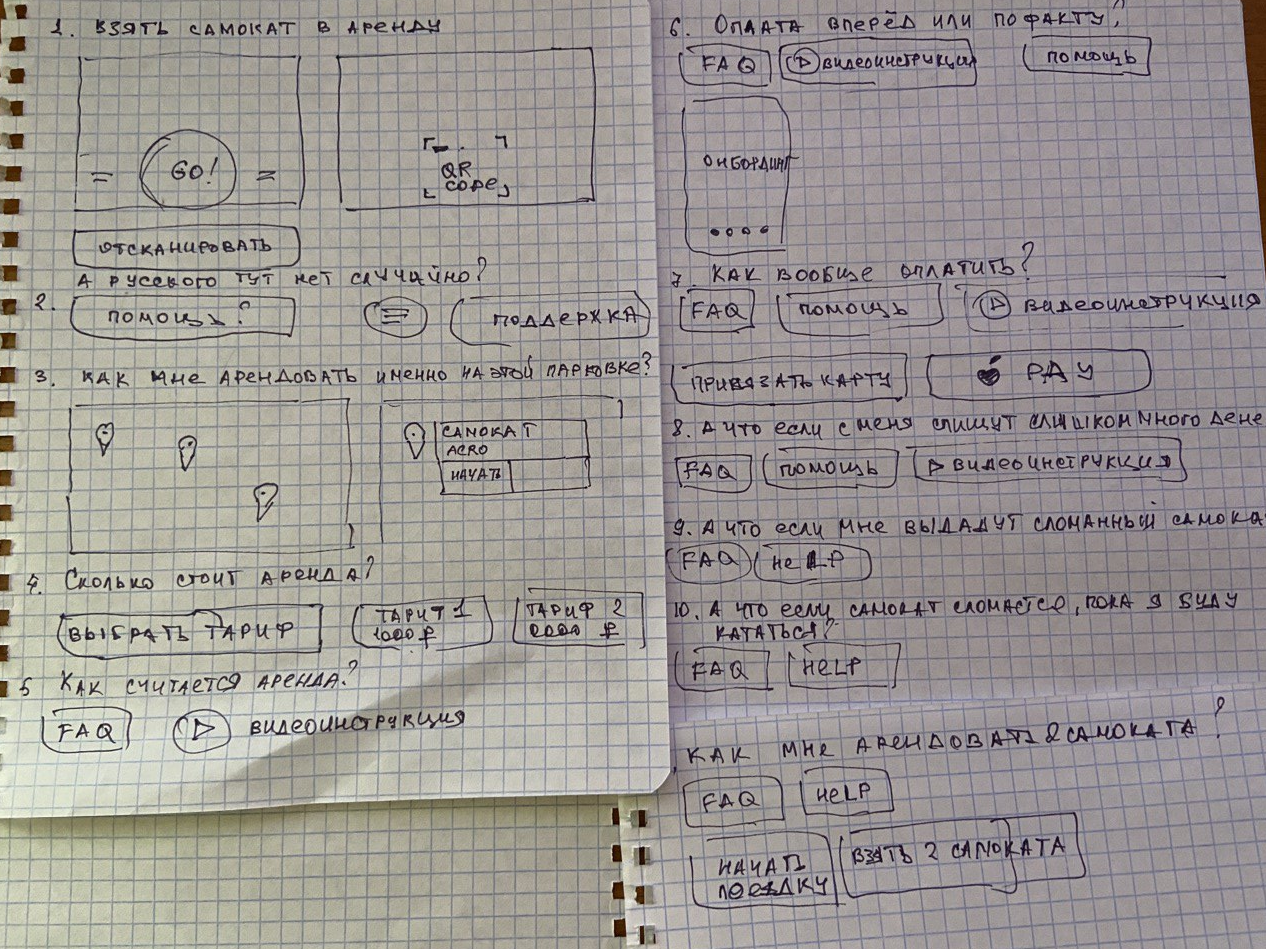 1. ВЗЯТЬ САМОКАТ В АРЕНДУ
GO!
QR
CODE
ОТСКАНИРОВАТЬ
А РУССКОГО ТУТ НЕТ СЛУЧАЙНО?
2.
ПОМОЩЬ?
ПОДДЕРЖКА
3. КАК МНЕ АРЕНДОВАТЬ ИМЕННО НА ЭТОЙ ПАРКОВКЕ?
САМОКАТ
ACRO
НАЧАТЬ
4. СКОЛЬКО СТОИТ АРЕНДА?
ВЫБРАТЬ ТАРИФ
ТАРИТ 1
1000 ₽
ТАРИФ 2
0000 ₽
5 КАК СЧИТАЕТСЯ АРЕНДА?
FAQ
ВИДЕОИНСТРУКЦИЯ
6. ОПЛАТА ВПЕРЁД ИЛИ ПО ФАКТУ?
FAQ
ВИДЕОИНСТРУКЦИЯ
ПОМОЩЬ
ОНБОРДИНГ
7. КАК ВООБЩЕ ОПЛАТИТЬ?
FAQ
ПОМОЩЬ
ВИДЕОИНСТРУКЦИЯ
ПРИВЯЗАТЬ КАРТУ
PAY
8. А ЧТО ЕСЛИ С МЕНЯ СПИШУТ СЛИШКОМ МНОГО ДЕНЕ
FAQ
ПОМОЩЬ
ВИДЕОИНСТРУКЦИЯ
9. А ЧТО ЕСЛИ МНЕ ВЫДАДУТ СЛОМАННЫЙ САМОКА
FAQ
HELP
10. А ЧТО ЕСЛИ САМОКАТ СЛОМАЕТСЯ, ПОКА Я БУДУ
КАТАТЬСЯ?
FAQ
HELP
КАК МНЕ АРЕНДОВАТЬ 2 САМОКАТА?
FAQ
HELP
НАЧАТЬ
ПОЕЗДКУ
ВЗЯТЬ 2 САМОКАТА